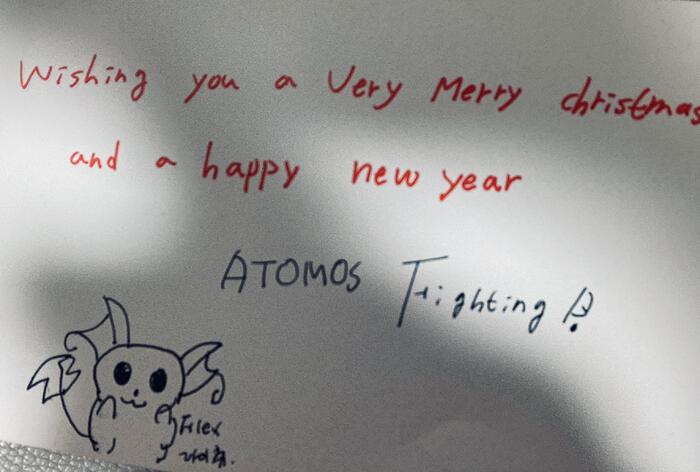 Wishing you a Very Merry christmas
and a happy new year
ATOMOS Fighting!